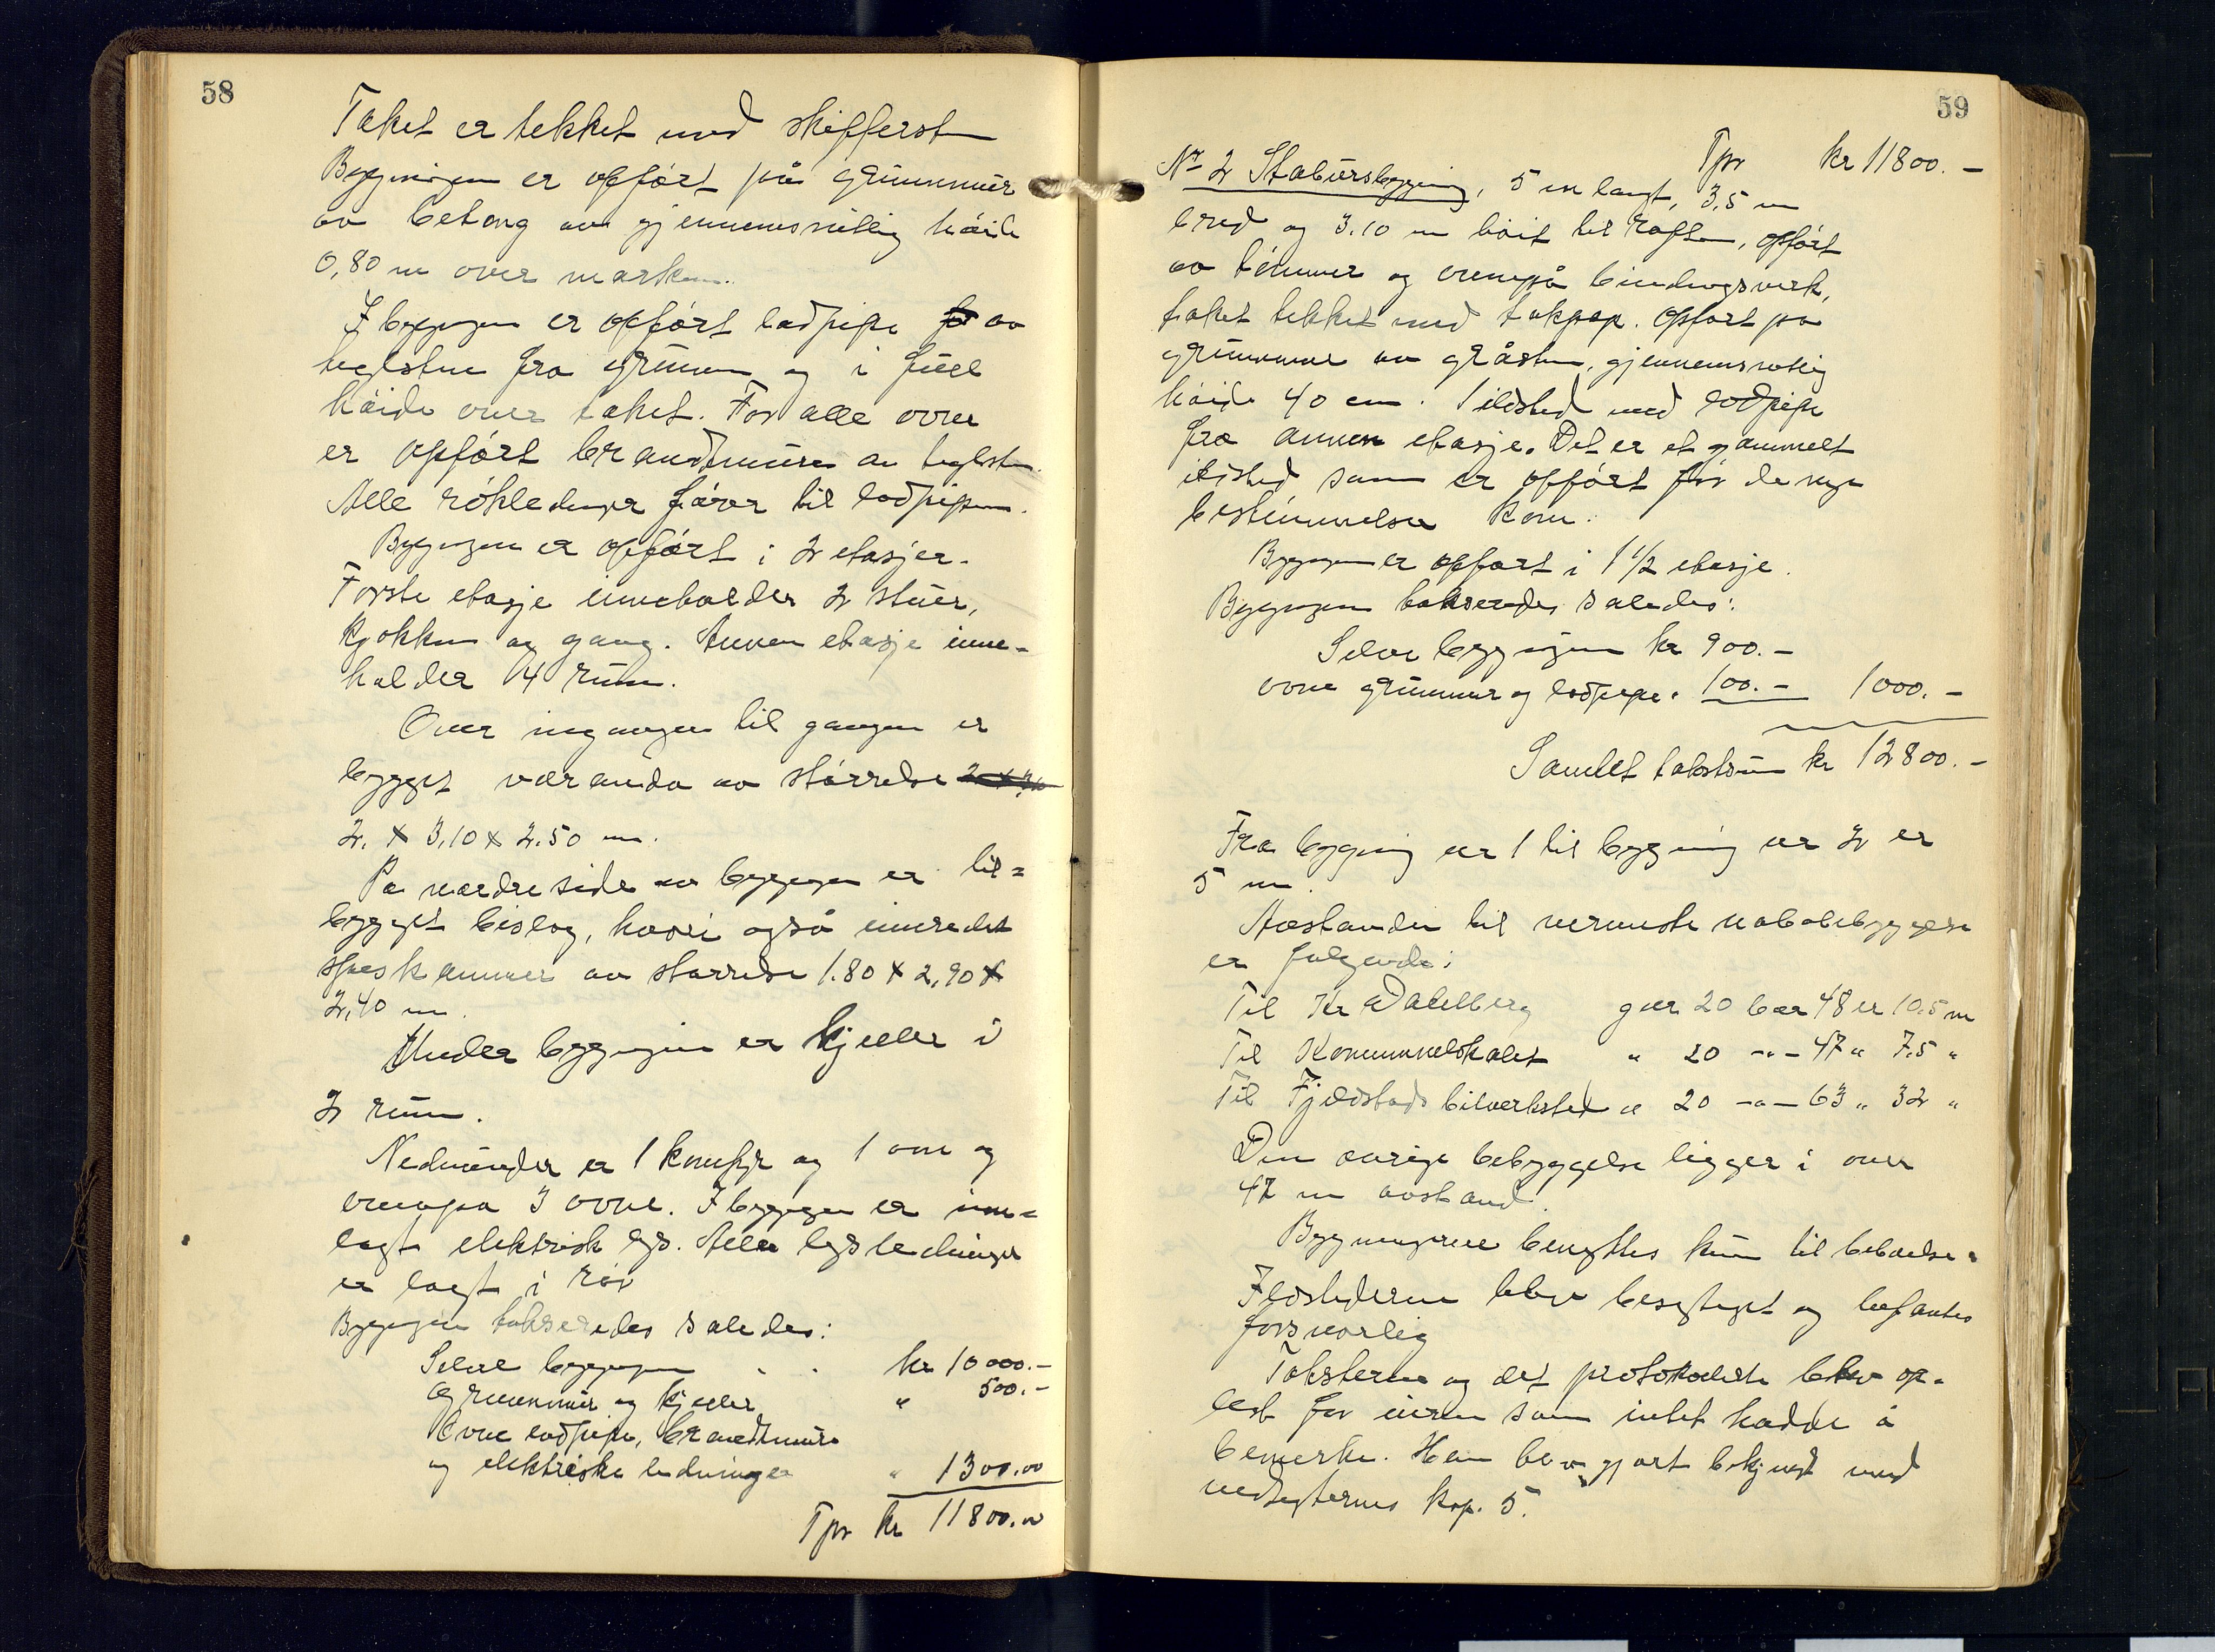 58
Taket er tekket med skiffersten
Bygningen er opført på grunnmur
av betong av gjennemsnitlig høide
0,80 m over marken.
I bygningen er opført lodpipe for av
teglsten fra grunnen og i full
høide over taket. For alle ovner
er opført brandtmurer av teglsten.
Alle rökledninger fører til lodpipen.
Bygningen er opført i 2 etasjer.
Første etasje inneholder 2 stuer,
kjøkken og gang. Annen etasje inne-
holder 4 rum.
Over inngangen til gangen er
bygget varanda av størrelse
2. x 3,10 x 2.50 m.
På nordre side av bygningen er til=
bygget bislag, hvori også innredet
spiskammer av størrelse 1.80 x 2,90 x
2,40 m.
Under bygningen er kjeller i
2 rum.
Nedenunder er 1 komfyr og 1 ovn og
ovenpå 3 ovne. I bygningen er inn=
lagt elektrisk lys. Alle lysledninger
er lagt i rör
Bygningen takseredes således:
Selve bygningen . . kr 10000.-
Grunnmur og kjeller " 500.-
Ovne lodpipe, brandtmure
og elektriske ledninger " 1300.00
Tpr kr 11800.00
59
Tpr kr 11800.-
No 2 Stabursbygning, 5 m langt, 3,5 m
bred og 3.10 m höit til raften, opfört
av tömmer og ovenpå bindingsverk,
taket tekket med takpap. Opført på
grunnmur av gråsten, gjennemsnitlig
höide 40 cm. 1 ildsted med lodpipe
fra annen etasje. Det er et gammelt
ildsted som er opfört för de nye
bestemmelser kom.
Bygningen er opført i 1 1/2 etasje.
Bygningen takseredes således:
Selve bygningen kr 900.-
ovne grunnmur og lodpipe " 100.- 1000.-
Samlet takstsum kr 12800.-
Fra bygning nr 1 til bygning nr 2 er
5 m.
Avstanden til nermeste nabobebyggelse
er følgende:
Til Kr Dahlberg gnr 20 bnr 48 er 10.5 m
Til Kommunelokalet " 20 -"- 47 " 7.5 "
Til Fjeldstads bilverksted " 20 -"- 63 " 32 "
Den øvrige bebyggelse ligger i over
47 m avstand.
Bygningerne benyttes kun til beboelse.
Ildstederne blev besigtiget og befantes
forsvarlig
Taksterne og det protokolerte blev op-
lest for eieren som intet hadde å
bemerke. Han blev gjort bekjent med
vedtekternes kap. 5.